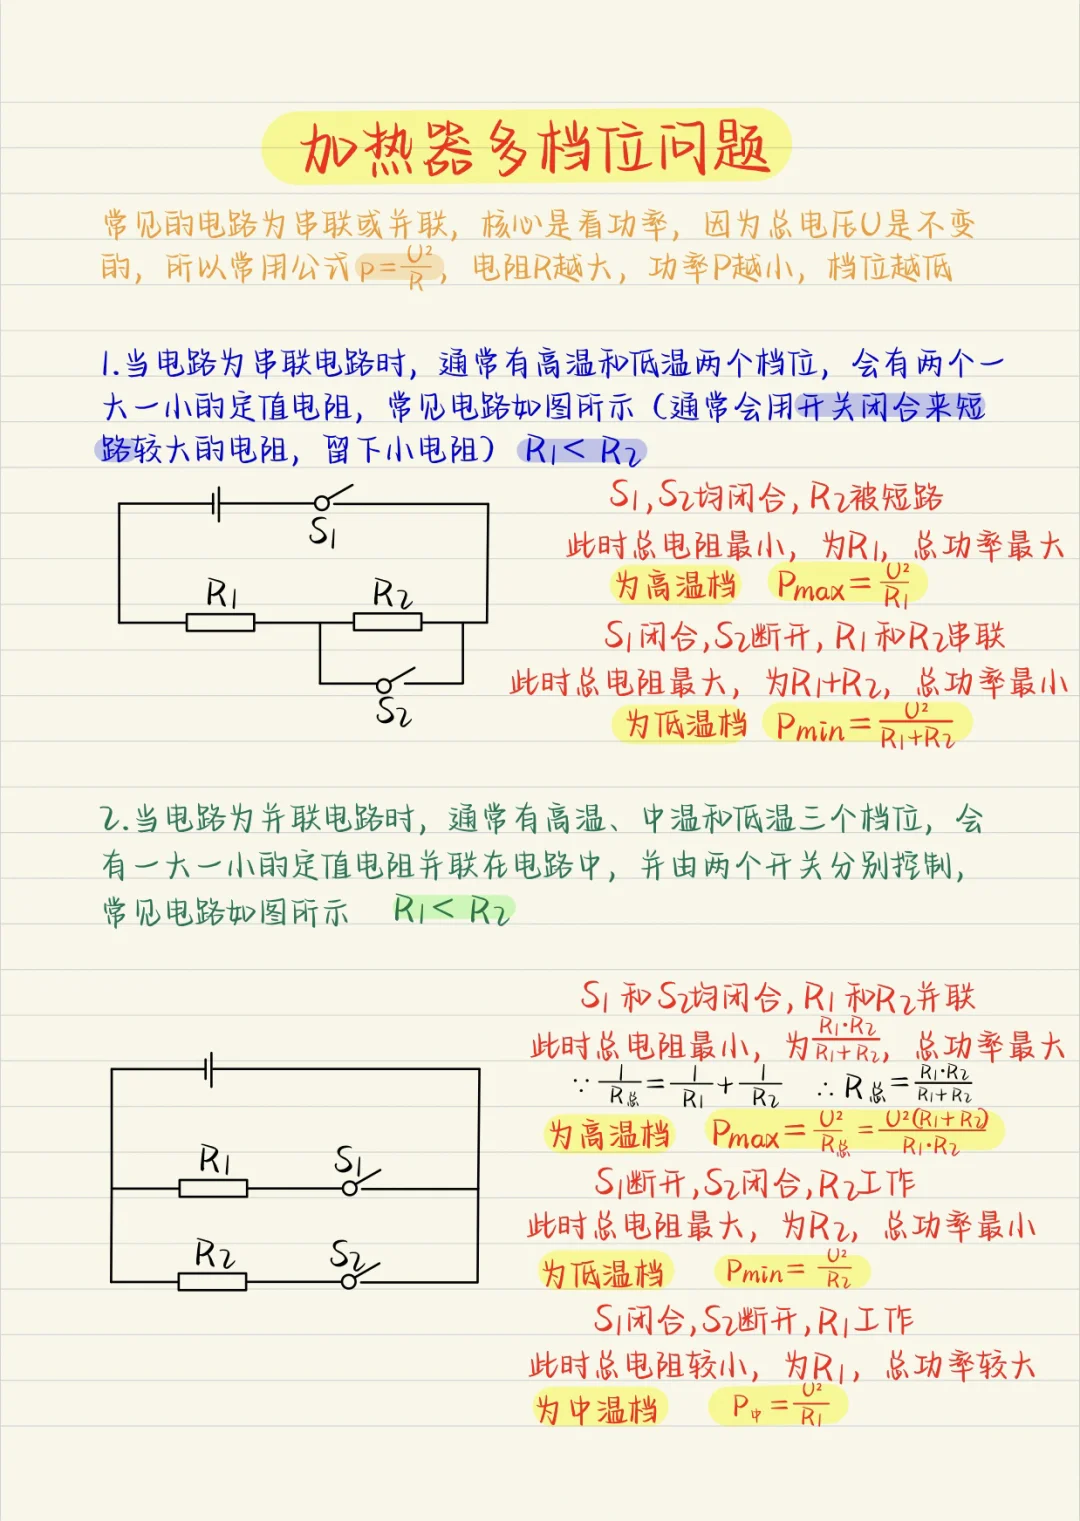 加热器多档位问题
常见的电路为串联或并联，核心是看功率，因为总电压U是不变
的，所以常用公式P=U²/R，电阻R越大，功率P越小，档位越低
1.当电路为串联电路时，通常有高温和低温两个档位，会有两个一
大一小的定值电阻，常见电路如图所示（通常会用开关闭合来短
路较大的电阻，留下小电阻）R₁<R₂
S₁
R₁ R₂
S₂
S₁,S₂均闭合,R₂被短路
此时总电阻最小，为R₁，总功率最大
为高温档 Pmax=U²/R₁
S₁闭合,S₂断开,R₁和R₂串联
此时总电阻最大，为R₁+R₂，总功率最小
为低温档 Pmin=U²/(R₁+R₂)
2.当电路为并联电路时，通常有高温、中温和低温三个档位，会
有一大一小的定值电阻并联在电路中，并由两个开关分别控制，
常见电路如图所示 R₁<R₂
R₁ S₁
R₂ S₂
S₁和S₂均闭合,R₁和R₂并联
此时总电阻最小，为R₁·R₂/(R₁+R₂)，总功率最大
∵1/R总=1/R₁+1/R₂ ∴R总=R₁·R₂/(R₁+R₂)
为高温档 Pmax=U²/R总=U²(R₁+R₂)/(R₁·R₂)
S₁断开,S₂闭合,R₂工作
此时总电阻最大，为R₂，总功率最小
为低温档 Pmin=U²/R₂
S₁闭合,S₂断开,R₁工作
此时总电阻较小，为R₁，总功率较大
为中温档 P中=U²/R₁